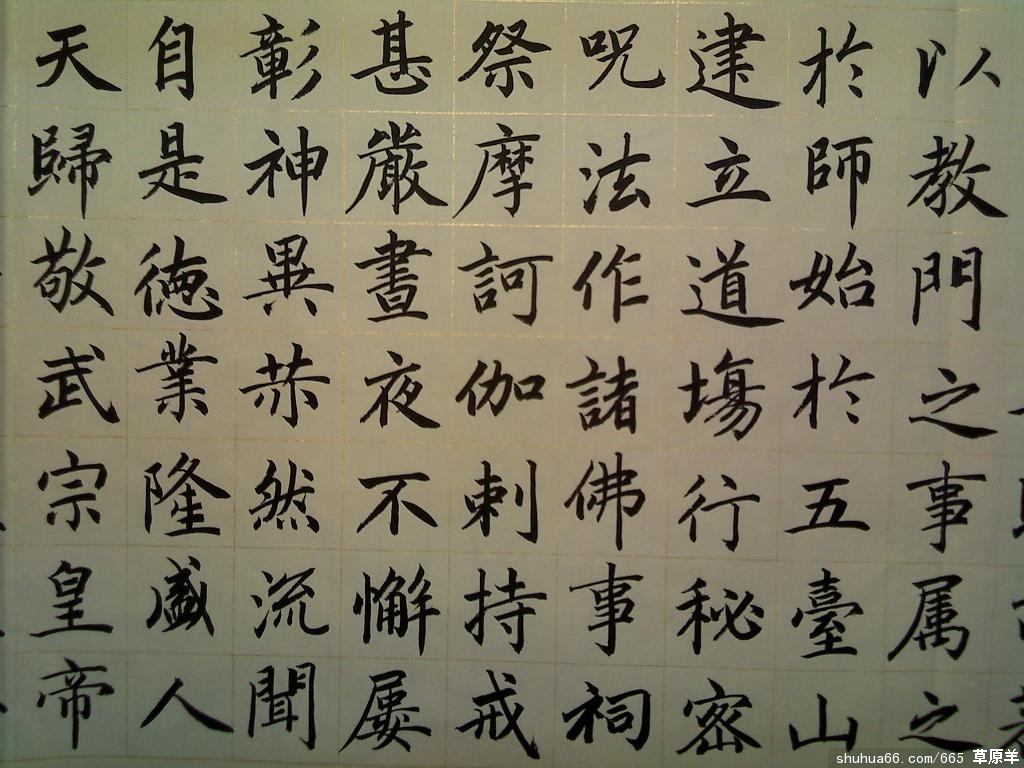 以教門之事属之
於師始於五臺山
建立道場行秘密
咒法作諸佛事祠
祭摩訶伽剌持戒
甚嚴晝夜不懈屢
彰神異赫然流聞
自是德業隆盛人
天歸敬武宗皇帝
shuhua66.com/665 草原羊